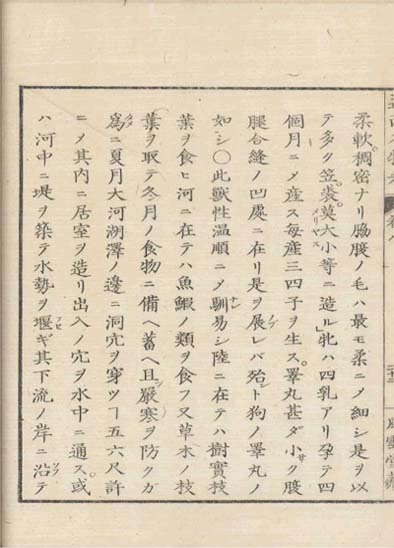 柔軟。稠密ナリ脇腹ノ毛ハ最モ柔ニ〆細シ是ヲ以
テ多ク笠。裘。莫大小等ニ造ル」牝ハ四乳アリ孕テ四
メリヤス
個月ニ〆産ス毎産三四子ヲ生ス。睾丸甚ダ小サク腹
腿合縫ノ凹處ニ在リ是ヲ展ノブレバ殆ント狗ノ睾丸ノ
如シ〇此獸性温順ニ〆馴ナレ易シ陸ニ在テハ樹實枝
葉ヲ食ヒ河ニ在テハ魚鰕ノ類ヲ食フ又草木ノ枝
葉ヲ取テ冬月ノ食物ニ備ヘ蓄ヘ且ツ嚴寒ヲ防クガ
爲タメニ夏月大河湖澤ノ邊ニ洞穴ヲ穿ツヿ五六尺許
ニ〆其内ニ居室ヲ造リ出入ノ穴ヲ水中ニ通ス。或
ハ河中ニ堤ヲ築テ水勢ヲ堰フセギ其下流ノ岸ニ沿ソフテ